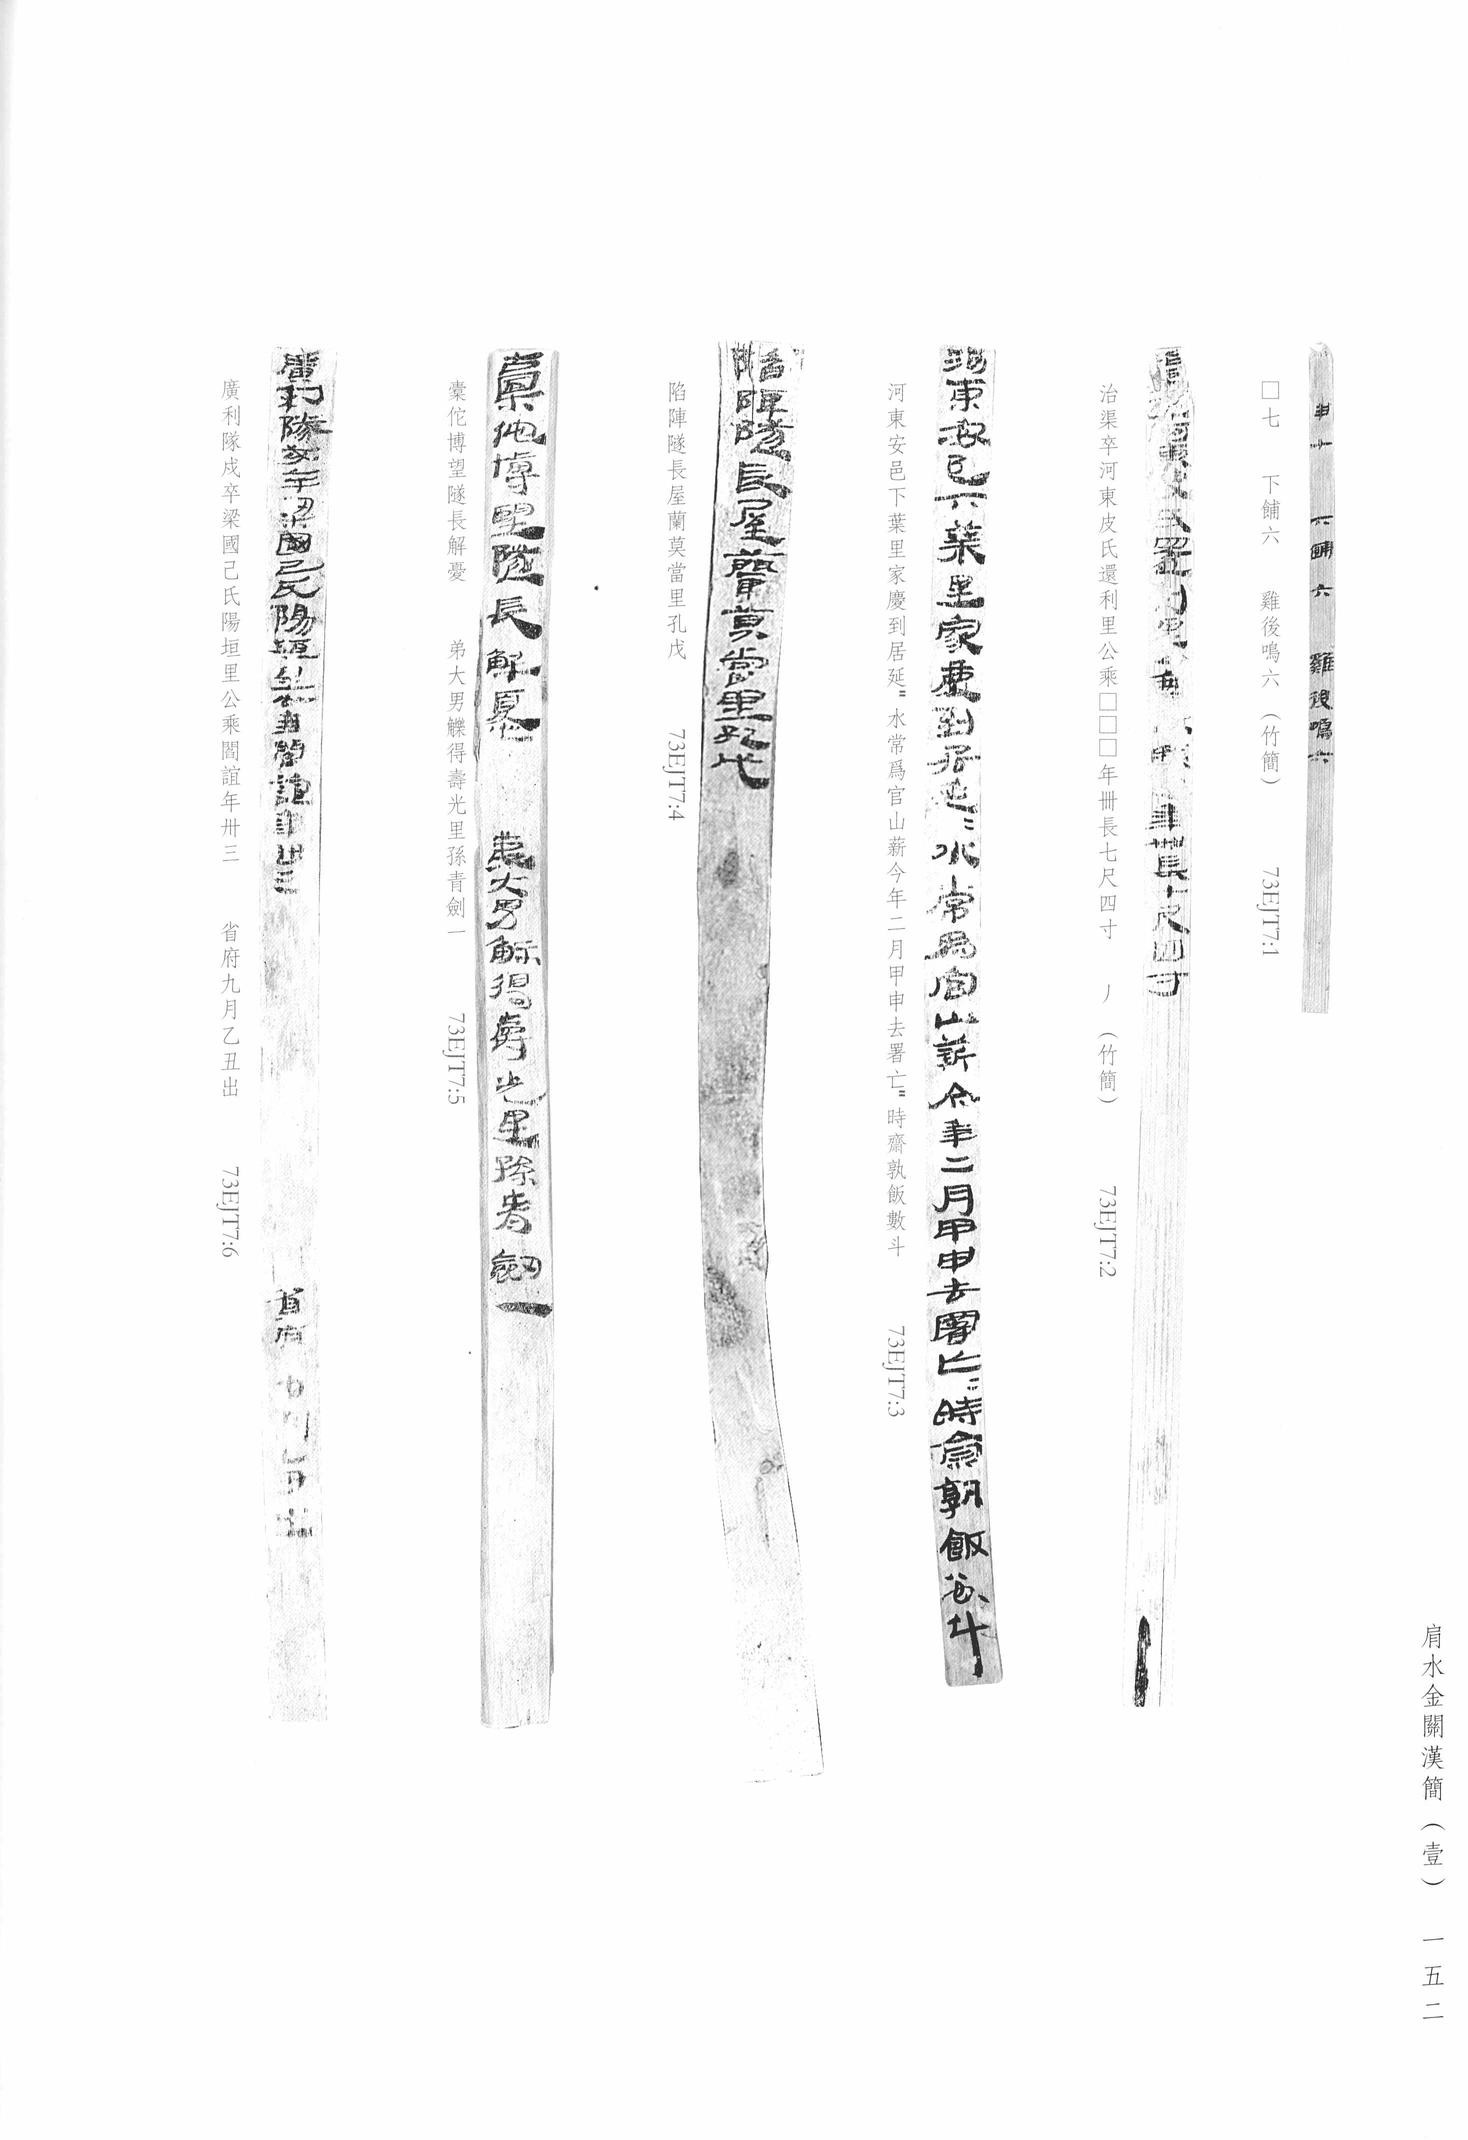 肩水金關漢簡（壹） 一五二
□七 下餔六 雞後鳴六（竹簡） 73EJT7:1
治渠卒河東皮氏還利里公乘□□□年卌長七尺四寸 丿（竹簡） 73EJT7:2
河東安邑下葉里家慶到居延〓水常爲官山薪今年二月甲申去署亡〓時齋孰飯數斗 73EJT7:3
陷陣隧長屋蘭莫當里孔戊 73EJT7:4
橐佗博望隧長解憂 弟大男觻得壽光里孫青劍一 73EJT7:5
廣利隊戍卒梁國己氏陽垣里公乘閻誼年卅三 省府九月乙丑出 73EJT7:6